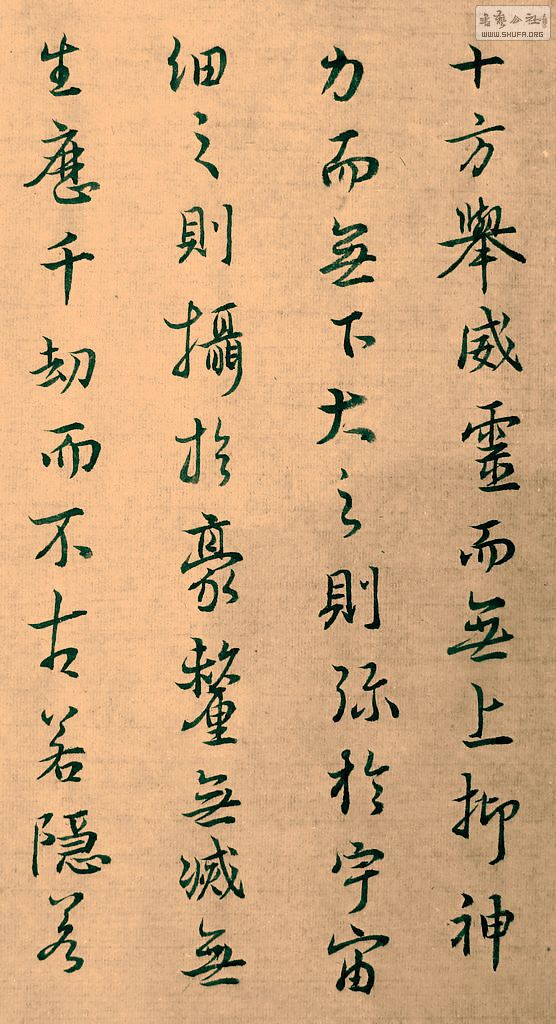 十方舉威靈而無上抑神
力而無下大之則弥於宇宙
細之則攝於豪釐無滅無
生應千劫而不古若隱若
WWW.SHUFA.ORG